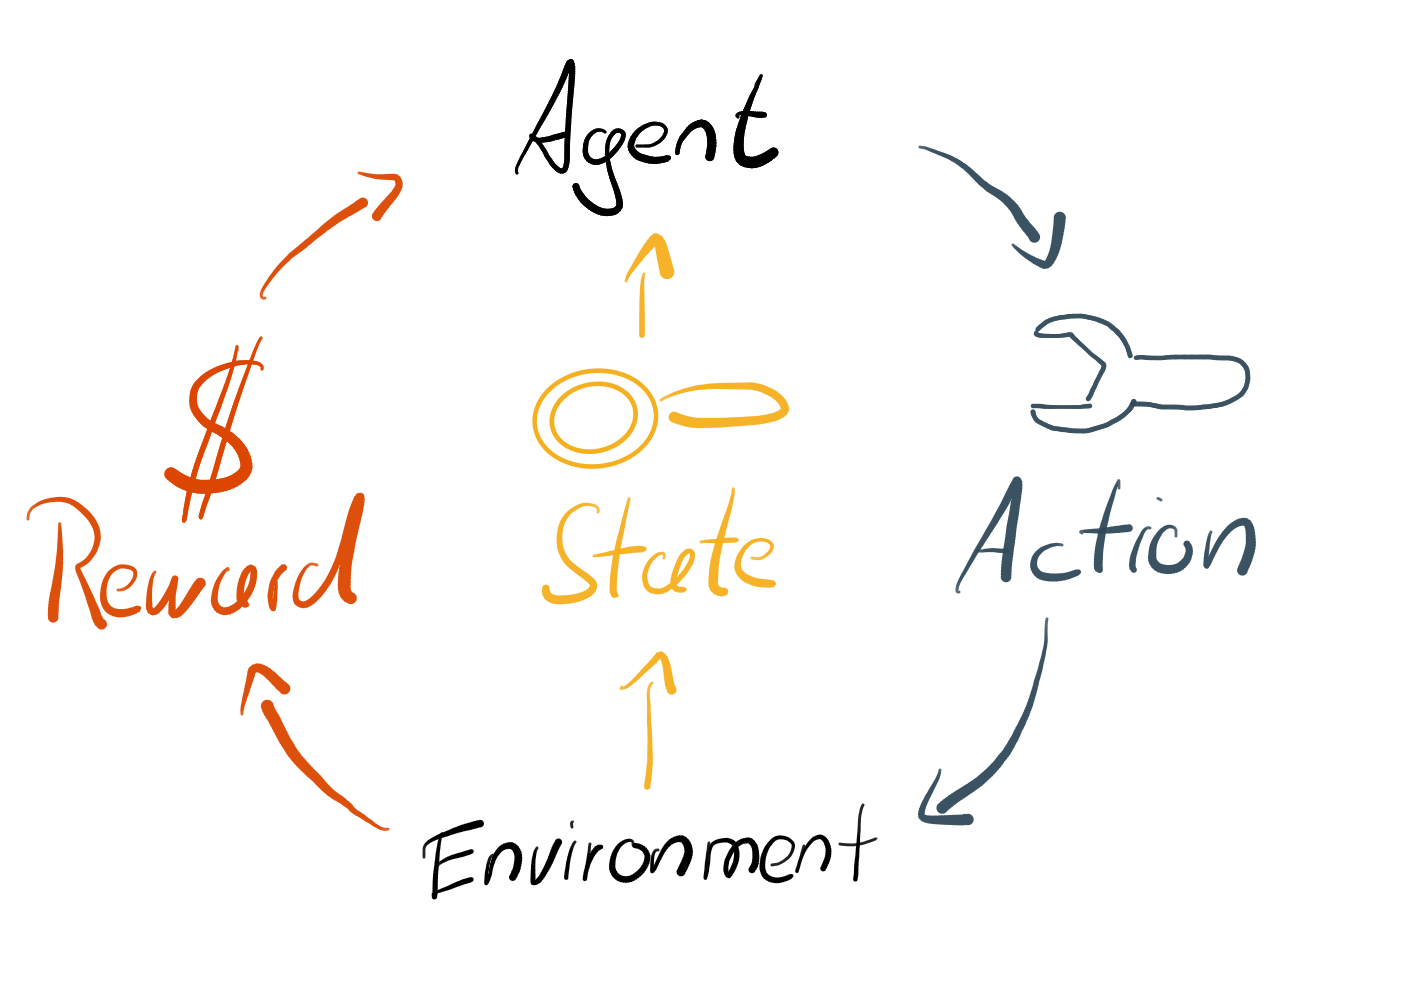 Agent
$
Reward
State
Action
Environment